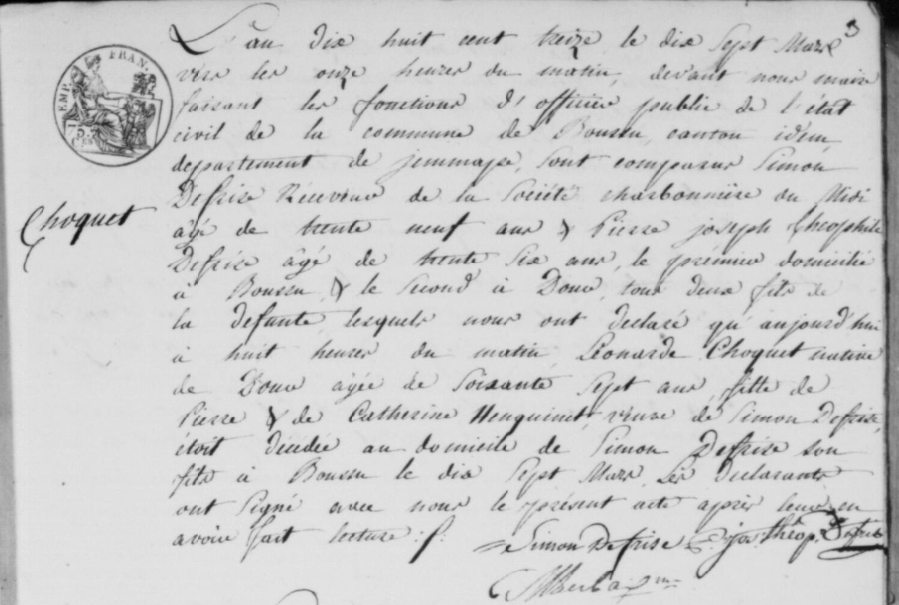 3
L'an dix huit cent treize le dix Sept Mars
vers les onze heures du matin, devant nous maire
faisant les fonctions d'officier public de l'état
civil de la commune de Boussu, canton idem,
departement de jemmape, sont comparus Simon
Defrise Réceveur de la Société charbonnière du Midi
agé de trente neuf ans & Pierre joseph théophile
Defrise âgé de trente Six ans, le prémier domicilié
à Boussu, & le Second à Dour, tous deux fils de
la defunte, lesquels nous ont declaré qu'aujourd'hui
à huit heures du matin Léonarde Choquet native
de Dour âgée de Soixante Sept ans, fille de
Pierre & de Catherine Henquinet, veuve de Simon Defrise,
étoit décédée au domicile de Simon Defrise son
fils à Boussu le dix Sept Mars Les Declarants
ont Signé avec nous le présent acte après leur en
avoir fait lecture :/.
Choquet
Simon Defrise P. jos. théop. Defrise
TIMP.
FRAN.